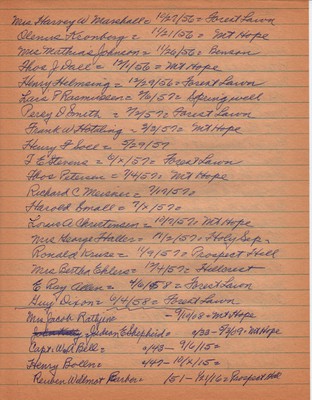 Mrs Harvey W. Marshall = 11/27/56 = Forest Lawn
Olenus Kronberg = 11/21/56 = Mt Hope
Mrs Mathias Johnson = 11/26/56 = Benson
Thos J Dall = 12/1/56 = Mt Hope
Henry Helmsing = 12/29/56 = Forest Lawn
Lars P Rasmussen = 2/6/57 = Springwell
Percy D Smith = /57 = Forest Lawn
Frank W Hotzling = 3/2/57 = Mt Hope
Henry F Soll = 5/29/57
T E Stevens = 57 = Forest Lawn
Thos Petersen = 7/4/57 = Mt Hope
Richard C Meisner = 7/19/57 =
Harold Small = 57 =
Louis A Christensen = 10/9/57 = Mt Hope
Mrs George Haller = 57 = Holy Sep.
Ronald Kruse = 11/9/57 = Prospect Hill
Mrs Bertha Ehlers = 12/4/57 = Hillcrest
E Ray Allen = 4/6/58 = Forest Lawn
Guy Dixon = 6/4/58 = Forest Lawn
Mrs Jacob Rathjen - 9/10/68 = Mt Hope
Judson E Shepherd = Mt Hope
Capt. W. A Bell = 9/6/15 =
Henry Bolen =
Reuben Wilmot Barber = 151 - 1/21/16 = Prospect Hill